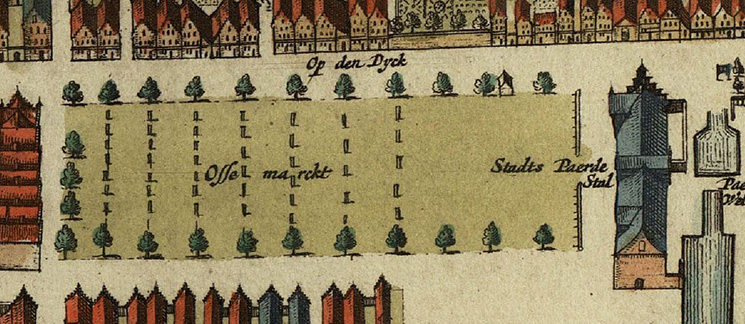 Op den Dyck
Osse marckt
Stadts Paerde
Stal